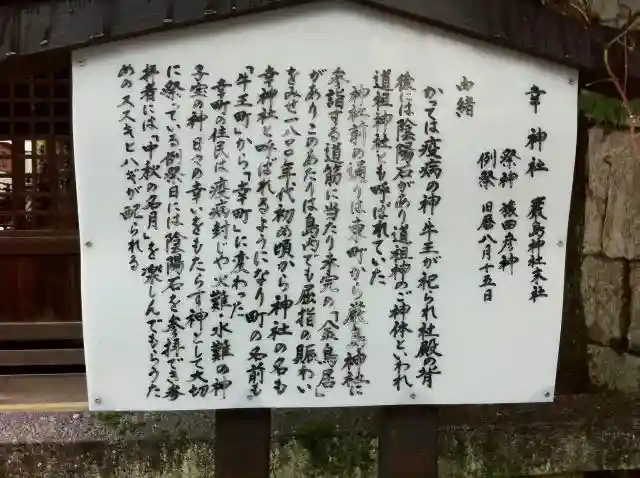 幸神社 厳島神社末社
祭神 猿田彦神
例祭 旧暦八月十五日
由緒
かつては疫病の神・牛王が祀られ社殿の背
後には陰陽石があり道祖神のご神体といわれ
道祖神社とも呼ばれていた
神社前の通りは東町から厳島神社に
参詣する道筋に当たり未完の「金鳥居」
がありこのあたりは島内でも屈指の賑わい
をみせ一八〇〇年代初め頃から神社の名も
幸神社と呼ばれるようになり町の名前も
「牛王町」から「幸町」に変わった
幸町の住民は疫病封じや火難・水難の神
子宝の神日々の幸いをもたらす神として大切
に祭っている例祭日には陰陽石を参拝でき参
拝者には「中秋の名月」を楽しんでもらうた
めのススキとハギが配られる